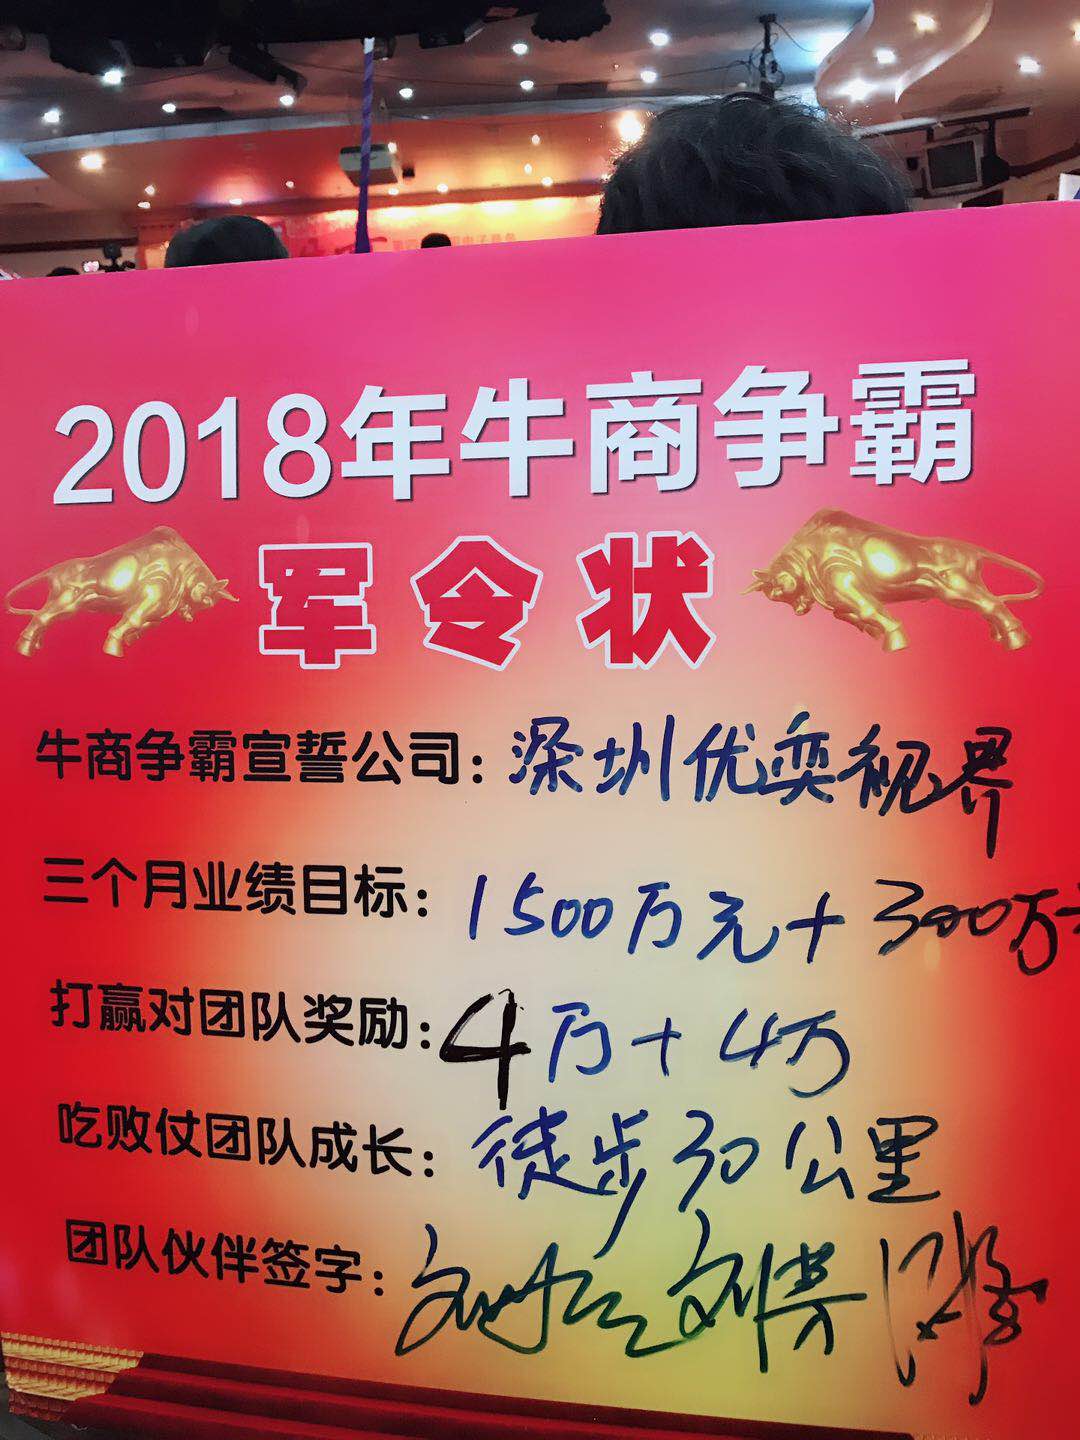 2018年牛商争霸
军令状
牛商争霸宣誓公司：深圳优奕视界
三个月业绩目标：1500万元+300万
打赢对团队奖励：4万+4万
吃败仗团队成长：徒步30公里
团队伙伴签字：